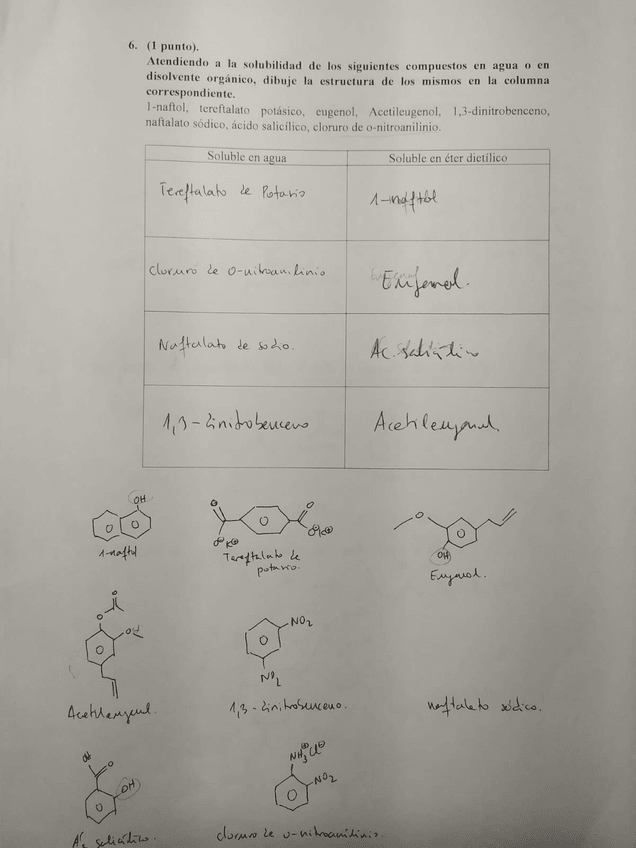 6. (1 punto).
Atendiendo a la solubilidad de los siguientes compuestos en agua o en
disolvente orgánico, dibuje la estructura de los mismos en la columna
correspondiente.
1-naftol, tereftalato potásico, eugenol, Acetileugenol, 1,3-dinitrobenceno,
naftalato sódico, ácido salicílico, cloruro de o-nitroanilinio.
Soluble en agua Soluble en éter dietílico
Tereftalato de Potasio 1-naftol
cloruro de o-nitroanilinio Eugenol.
Naftalato de sodio. Ac. salicílico
1,3-dinitrobenceno Acetileugenol.
OH
1-naftol
O O
O⊖K⊕ O⊖K⊕
Tereftalato de
potasio.
O
OH
Eugenol.
O
O
O
Acetileugenol.
NO2
NO2
1,3-dinitrobenceno.
naftalato sódico.
OH
O
OH
Ác salicílico.
NH3⊕Cl⊖
NO2
cloruro de o-nitroanilinio.